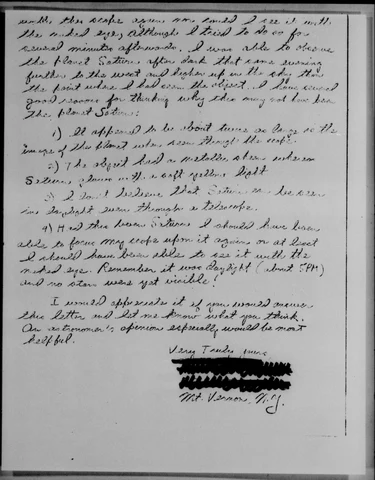 with the scope again nor could I see it with
the naked eye, although I tried to do so for
several minutes afterwards. I was able to observe
the planet Saturn after dark that same evening
further to the west and higher up in the sky than
the point where I had seen the object. I have several
good reasons for thinking why this may not have been
the planet Saturn:
1) It appeared to be about twice as large as the
image of this planet when seen through the scope.
2) The object had a metallic sheen whereas
Saturn glows with a soft yellow light
3) I don't believe that Saturn can be seen
in daylight even through a telescope.
4) Had this been Saturn I should have been
able to focus my scope upon it again or at least
I should have been able to see it with the
naked eye. Remember it was daylight (about 5PM)
and no stars were yet visible.
I would appreciate it if you would answer
this letter and let me know what you think.
An astronomer's opinion especially would be most
helpful.
Very Truly yours
Mt. Vernon, N.Y.